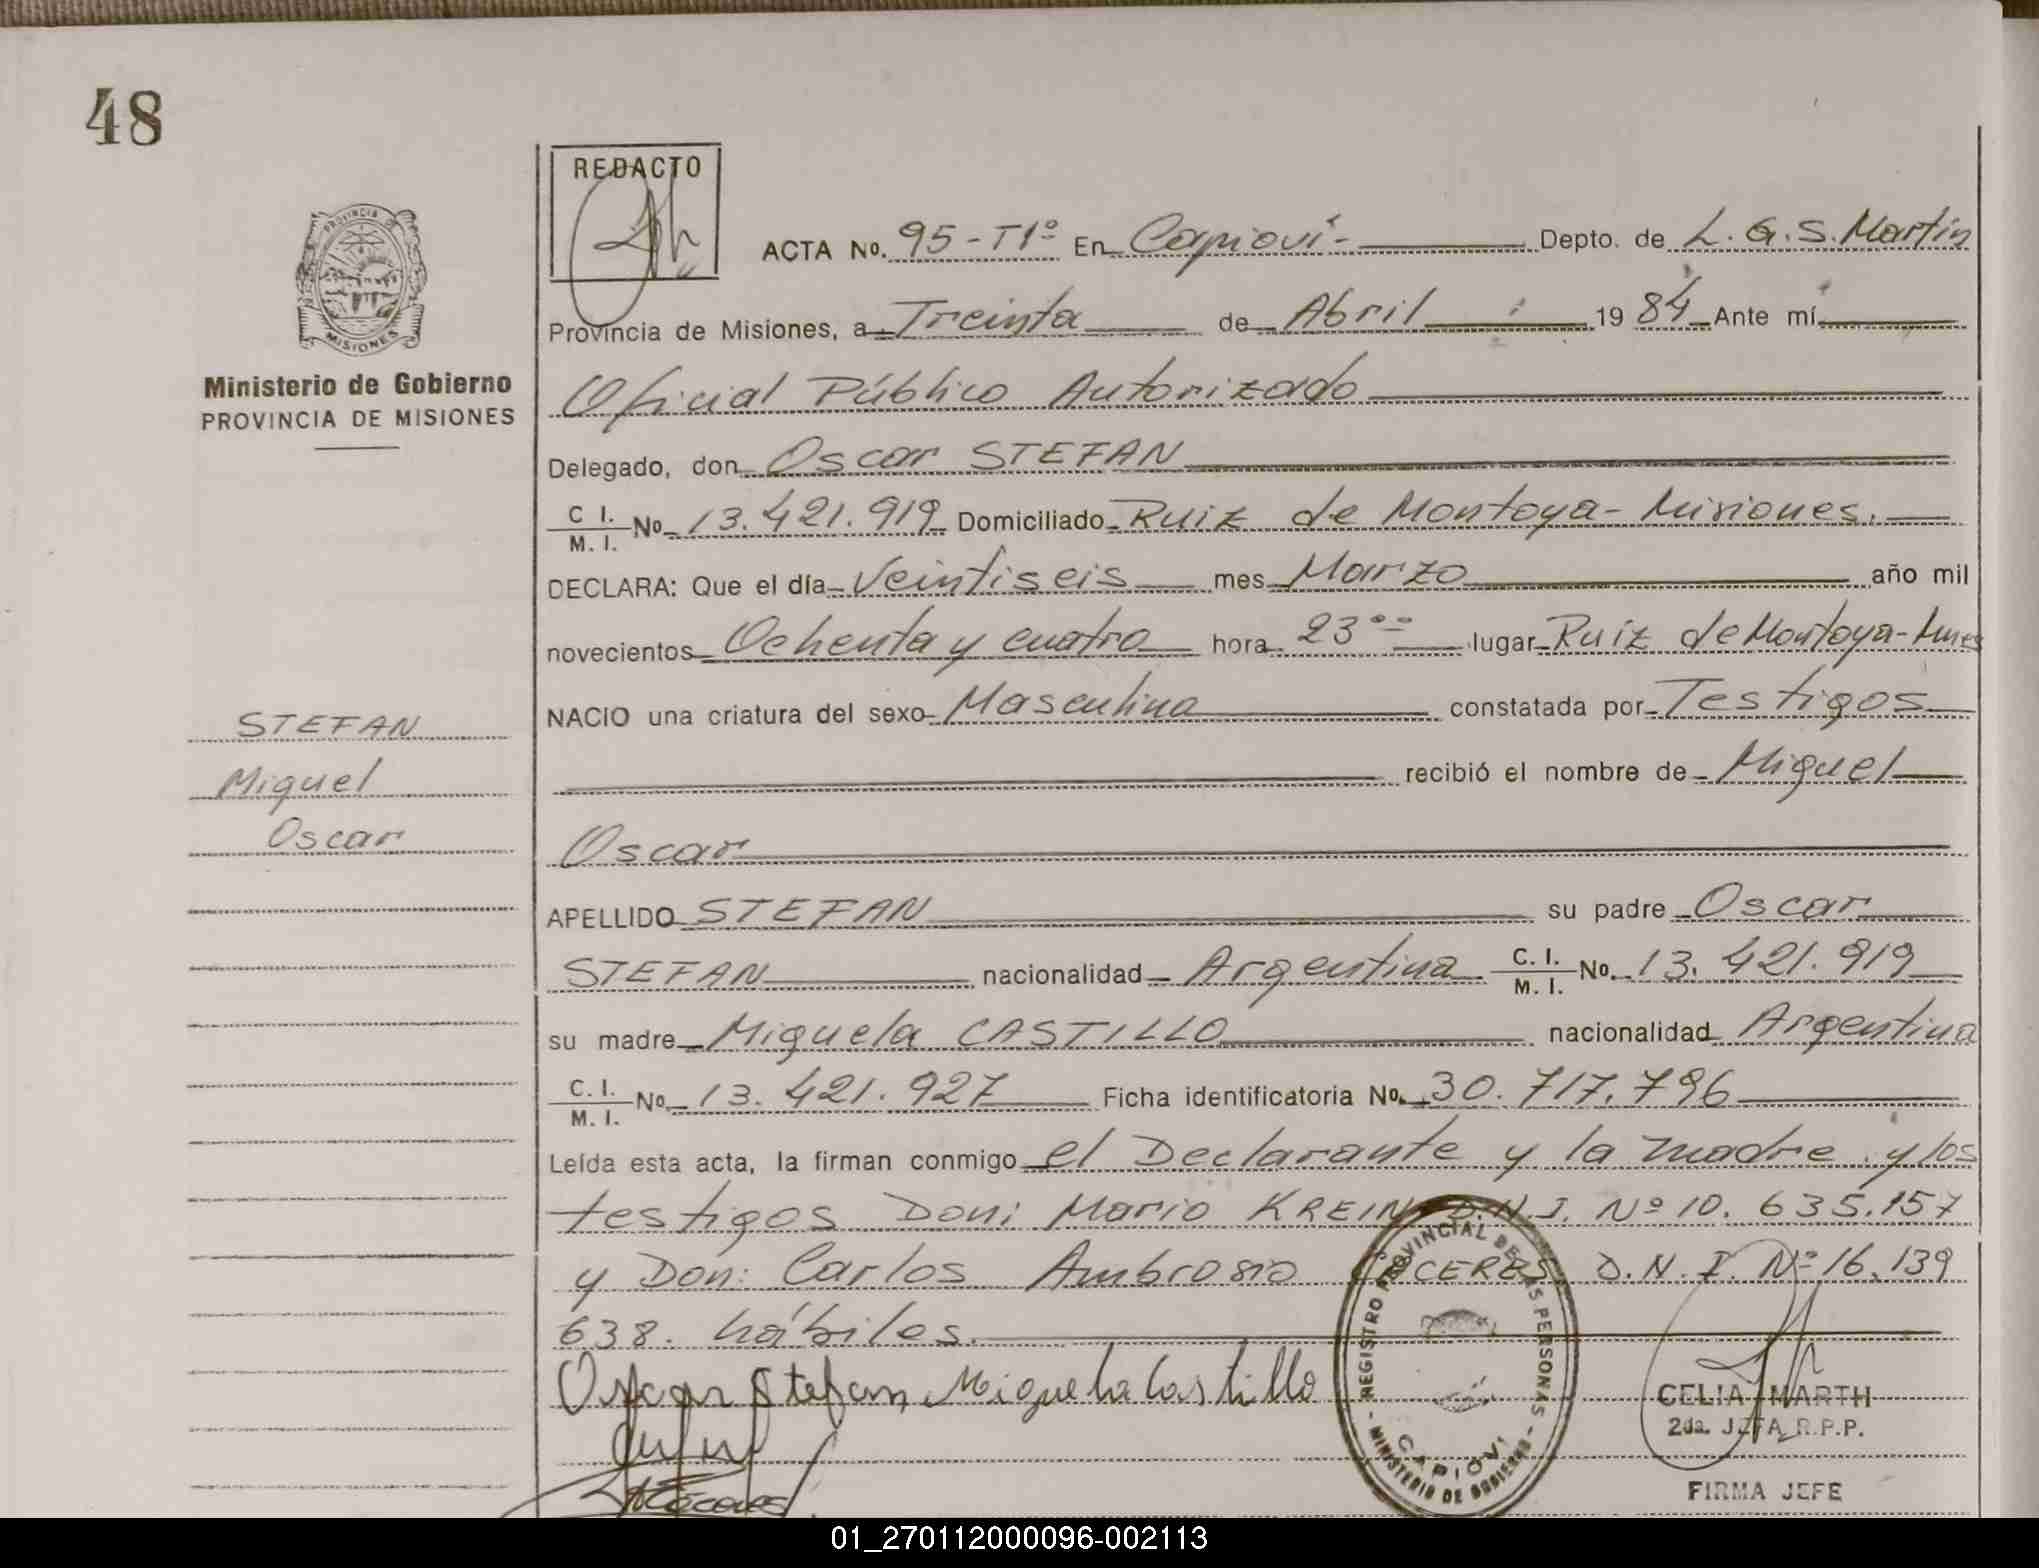 48
REDACTO
PROVINCIA DE
MISIONES
Ministerio de Gobierno
PROVINCIA DE MISIONES
ACTA No. 95-T1º En Capioví- Depto. de L. G. S. Martín
Provincia de Misiones, a Treinta de Abril 1984 Ante mí
Oficial Público Autorizado
Delegado, don Oscar STEFAN
C I. M. I. No 13.421.919 Domiciliado Ruiz de Montoya- Misiones.
DECLARA: Que el día Veintiseis mes Marzo año mil
novecientos Ochenta y cuatro hora 23ºº lugar Ruiz de Montoya-Mnes
NACIO una criatura del sexo Masculino constatada por Testigos
recibió el nombre de Miguel
Oscar
APELLIDO STEFAN su padre Oscar
STEFAN nacionalidad Argentina C. I. M. I. No. 13.421.919
su madre Miguela CASTILLO nacionalidad Argentina
C. I. M. I. No 13.421.927 Ficha identificatoria No. 30.717.796
Leída esta acta, la firman conmigo el Declarante y la madre y los
testigos Don: Mario KREIN D.N.I. Nº 10.635.157
y Don: Carlos Ambrosio CACERES D.N.I. Nº 16.139
638. hábiles.
STEFAN
Miguel
Oscar
Oscar Stefan Miguela Castillo
REGISTRO PROVINCIAL DE LAS PERSONAS
CAPIOVI
MINISTERIO DE GOBIERNO
CELIA MARTH
2da. JEFA R.P.P.
FIRMA JEFE
01_270112000096-002113